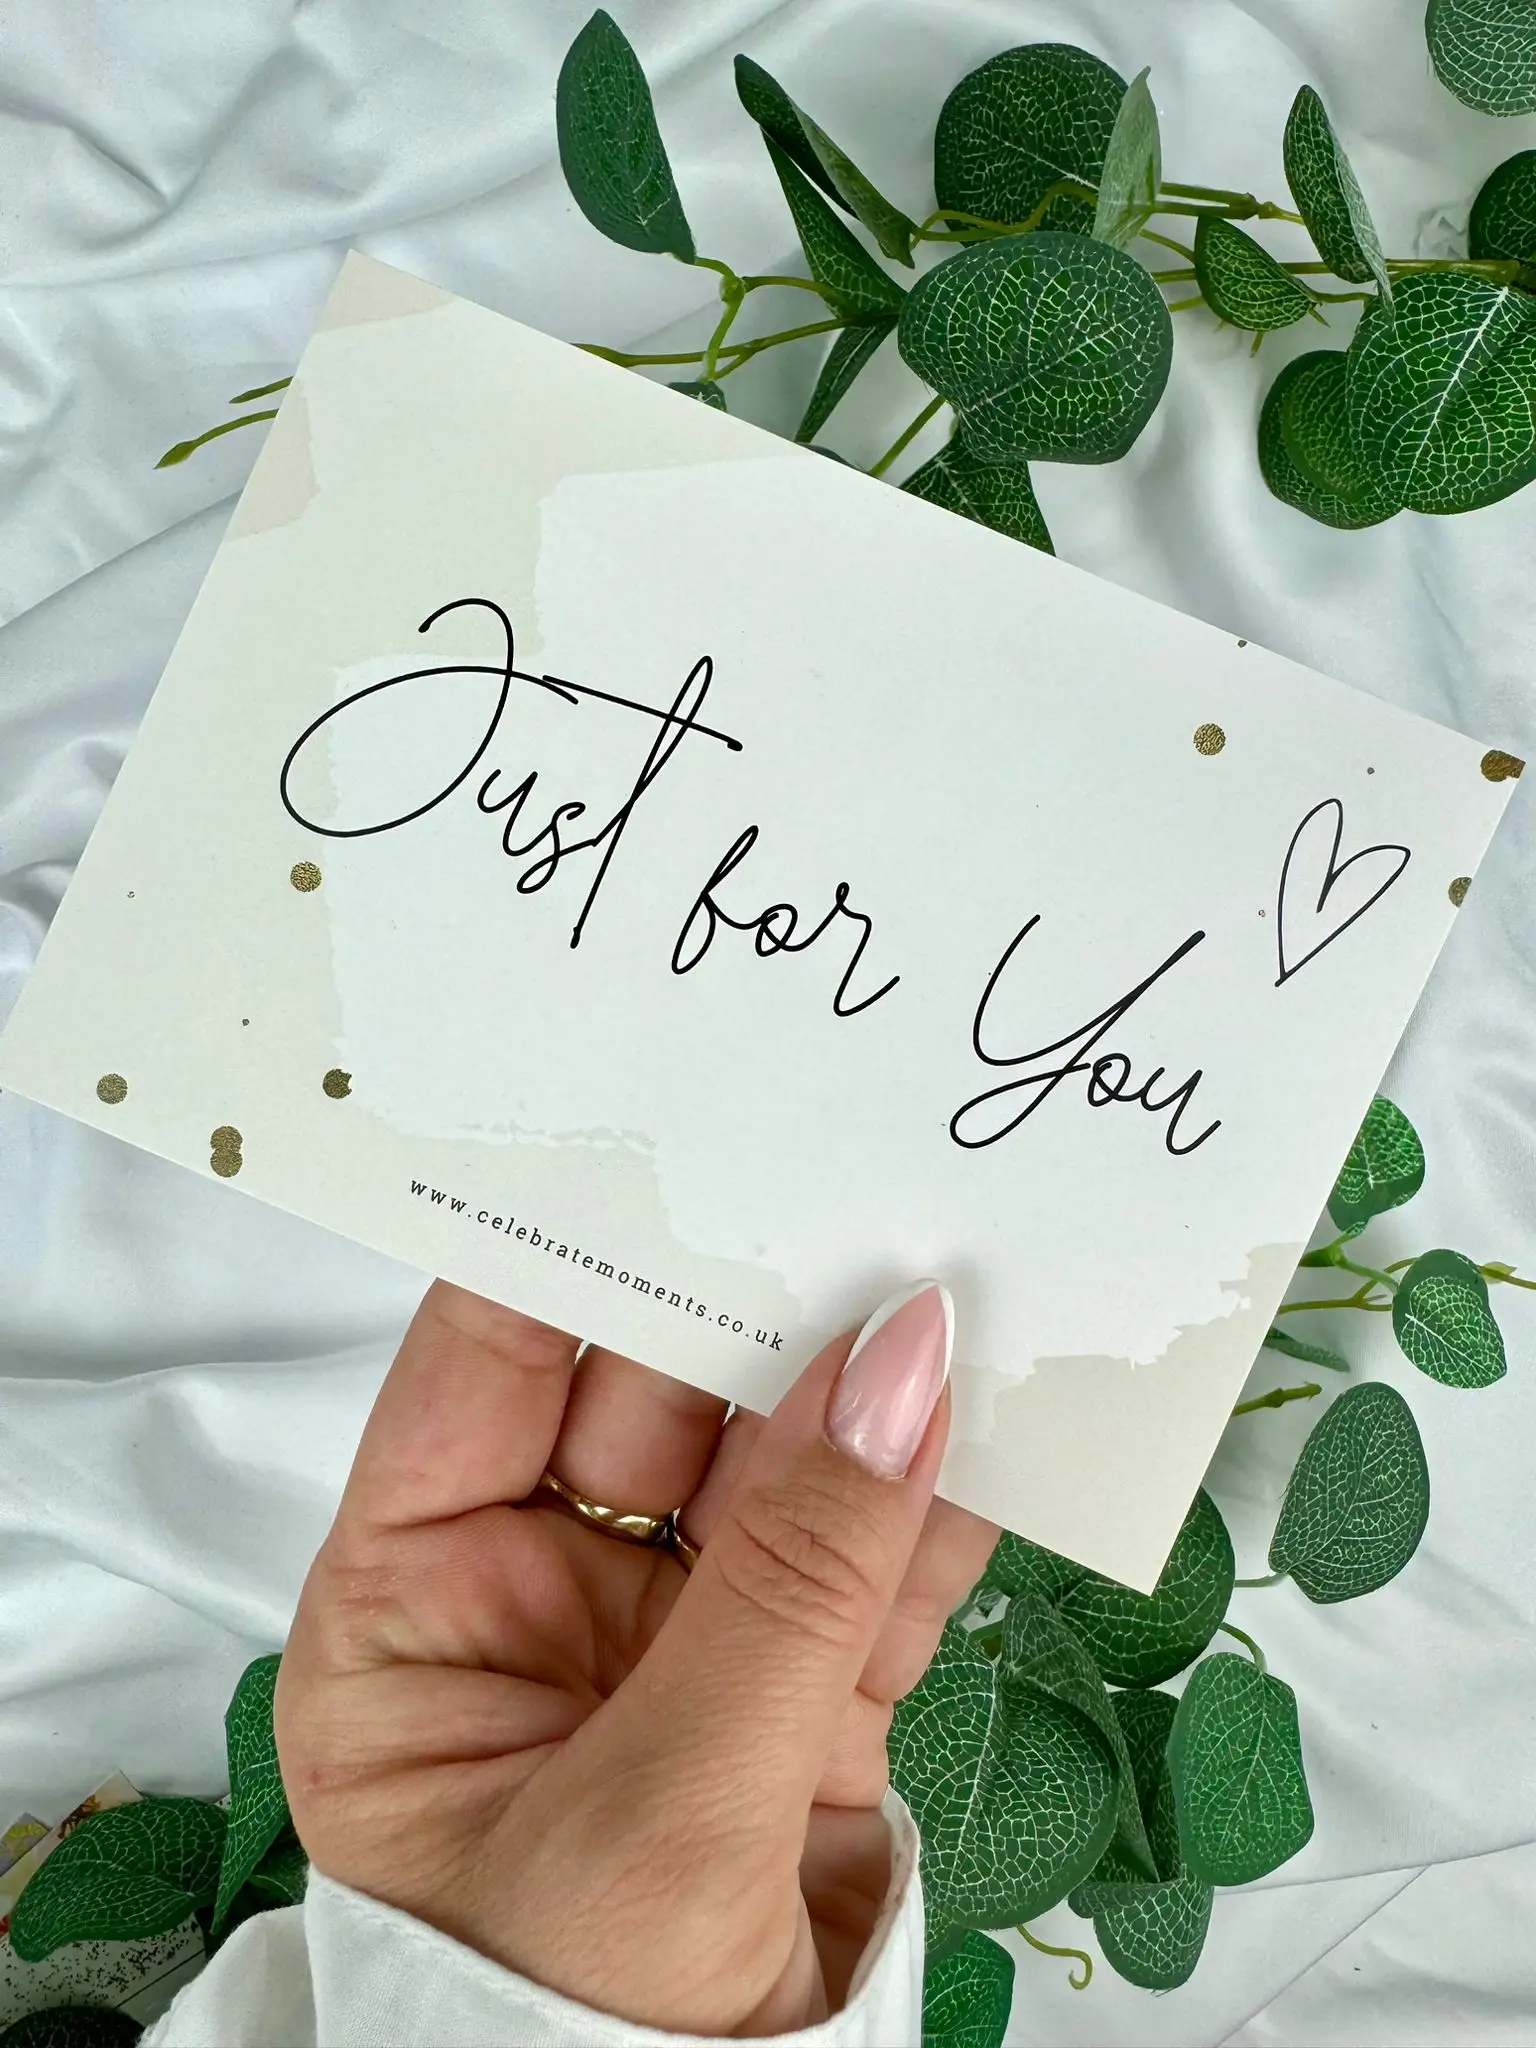 Just for You
www.celebratemoments.co.uk